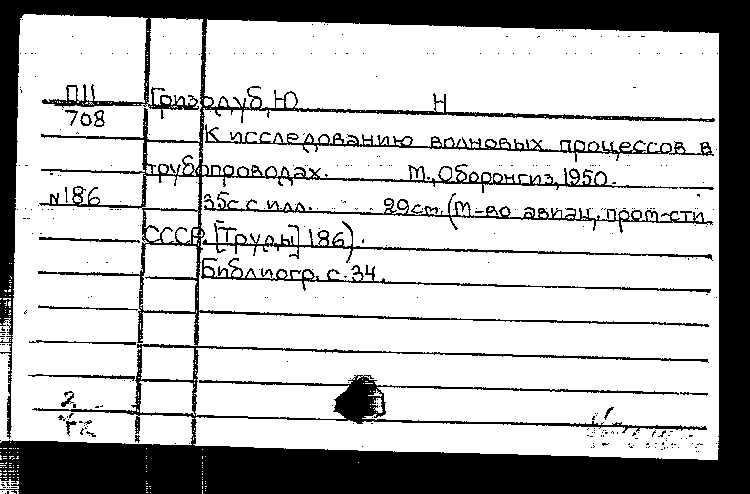 П11 Гризодуб, Ю Н
708
К исследованию волновых процессов в
трубопроводах. М., Оборонгиз, 1950.
N186 35с. с илл. 29см. (М-во авиац. пром-сти
СССР. [Труды] 186).
Библиогр. с. 34.
2.